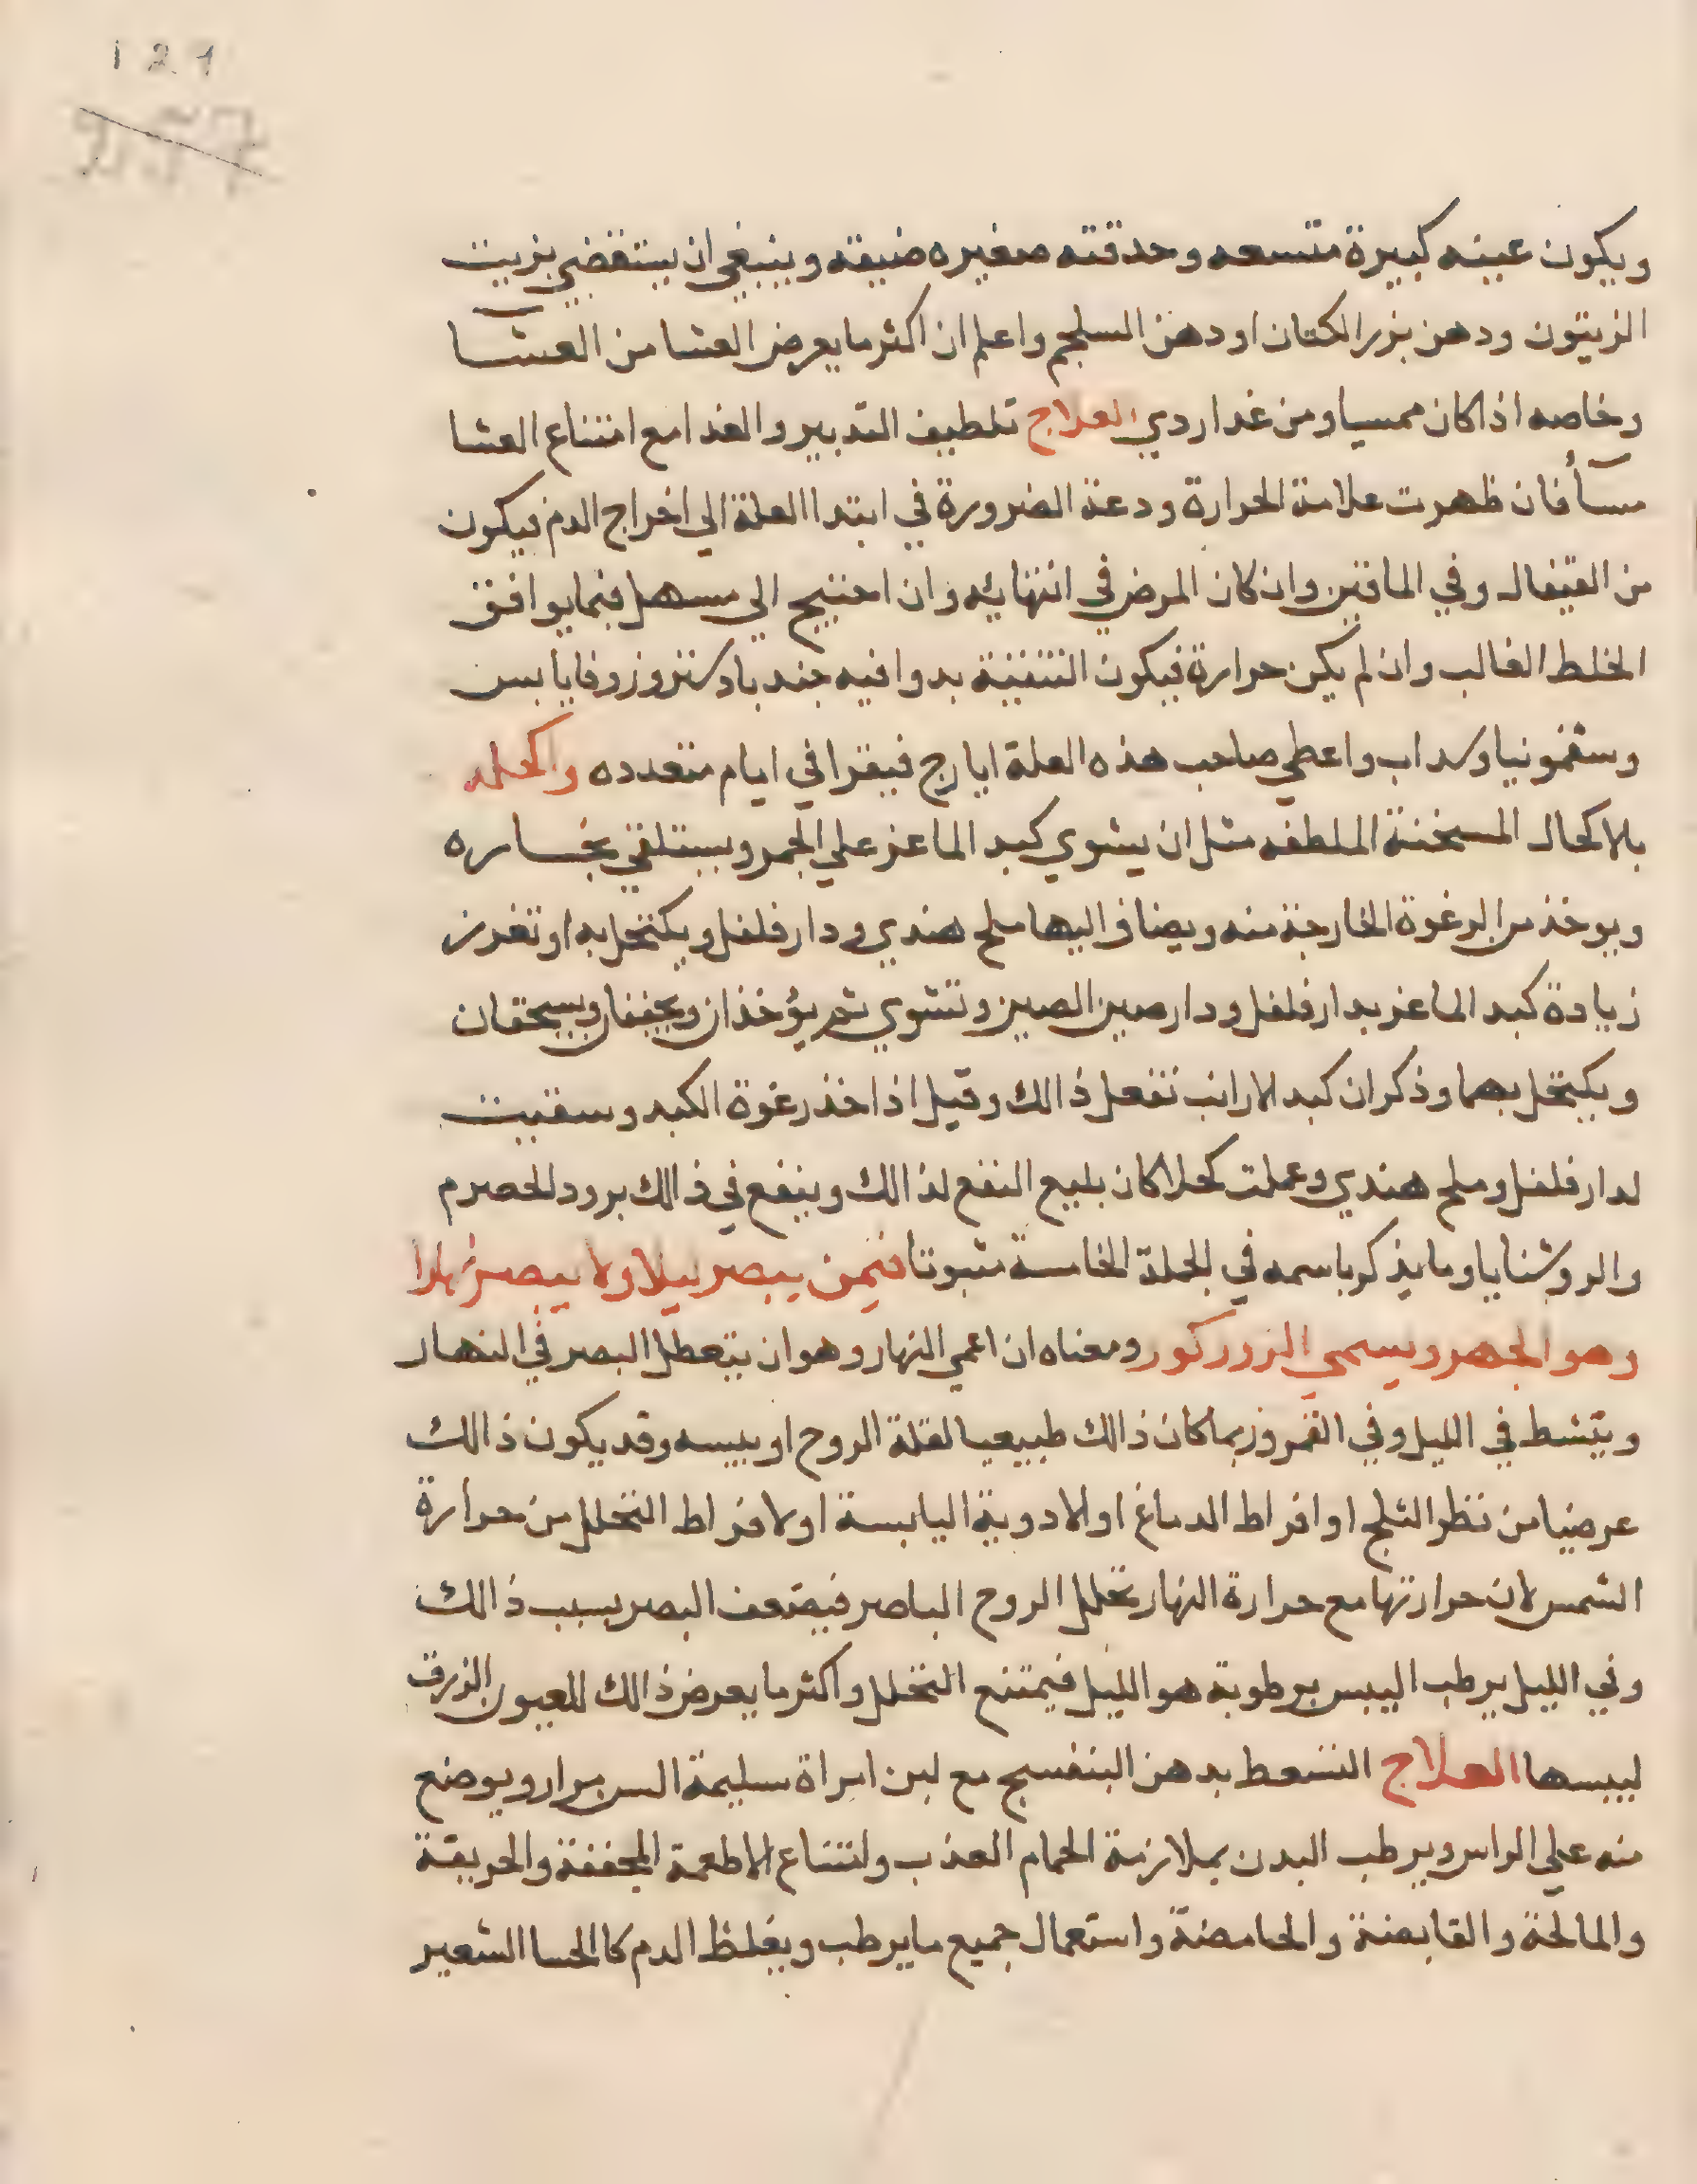 121
ويكون عينه كبيرة متسعه وحدقته صغيره ضيقه وينبغي ان يستقضي بزيت
الزيتون ودهن بزر الكتان او دهن السلجم واعلم ان اكثر ما يعرض العشا من العشا
وخاصه اذا كان ممسيا ومن غدا ردي العلاج تلطيف التدبير والغدا مع امتناع العشا
مسآ فان ظهرت علامة الحرارة ودعة الضرورة في ابتدا العلة الي اخراج الدم فيكون
من القيفال وفي الماقين وان كان المرض في انتهائه وان احتيج الي مسهل فبما يوافق
الخلط الغالب وان لم يكن حرارة فيكون التنقية بدوا فيه جندبادستر وزوفا يابس
وسقمونيا وسداب واعطي صاحب هذه العلة ايارج فيقرا في ايام متعدده واكحله
بالاكحال المسخنة الملطفه مثل ان يشوي كبد الماعز علي الجمر ويستلقي بخاره
ويوخذ من الرغوة الخارجة منه ويضاف اليها ملح هندي ودار فلفل ويكتحل به او تغرز
زيادة كبد الماعز بدار فلفل ودارصين الصين وتشوي ثم يؤخذان ويجففان ويسحقان
ويكتحل بهما وذكر ان كبد الارانب تفعل ذالك وقيل اذا اخذ رغوة الكبد وسقيت
لدار فلفل وملح هندي وعملت كحلا كان بليع النفع لذالك وينفع في ذالك برود الحصرم
والروشنايا وما يذكر باسمه في الجملة الخامسة مثبوتا فيمن يبصر ليلا ولا يبصر نهارا
وهو الجهر ويسمي الزوركور ومعناه ان اعمي النهار وهو ان يتعطل البصر في النهار
وينشط في الليل وفي القمر وربما كان ذالك طبيعيا لقلة الروح او يبسه وقد يكون ذالك
عرضيا من نظر الثلج او افراط الدماغ او الادوية اليابسة او لافراط التحلل من حرارة
الشمس لان حرارتها مع حرارة النهار تحلل الروح الباصر فيضعف البصر بسبب ذالك
وفي الليل يرطب اليبس برطوبة هو الليل فيمتنع التحلل واكثر ما يعرض ذالك للعيون الزرق
ليبسها العلاج التسعط بدهن البنفسج مع لبن امراة سليمة السن مرار ويوضع
منه علي الراس ويرطب البدن بملازمة الحمام العذب وامتناع الاطعمة المجففة والحريقة
والمالحة والقابضة والحامضة واستعمال جميع ما يرطب ويغلظ الدم كالحسا الشعير